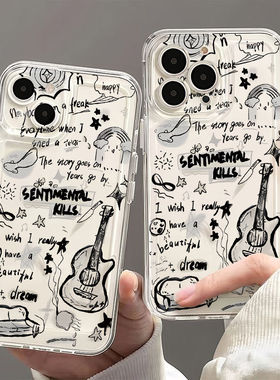 happy
freak
everyone when I
The story goes on
Years go by.
SENTIMENTAL
KILLS.
I wish I really
have a
beautiful
dream
n
happy
a freak
everyone when I
sned a tears.
The story goes on ...
Years go by.
SENTIMENTAL
KILLS.
I wish I really
have a
beautiful
dream